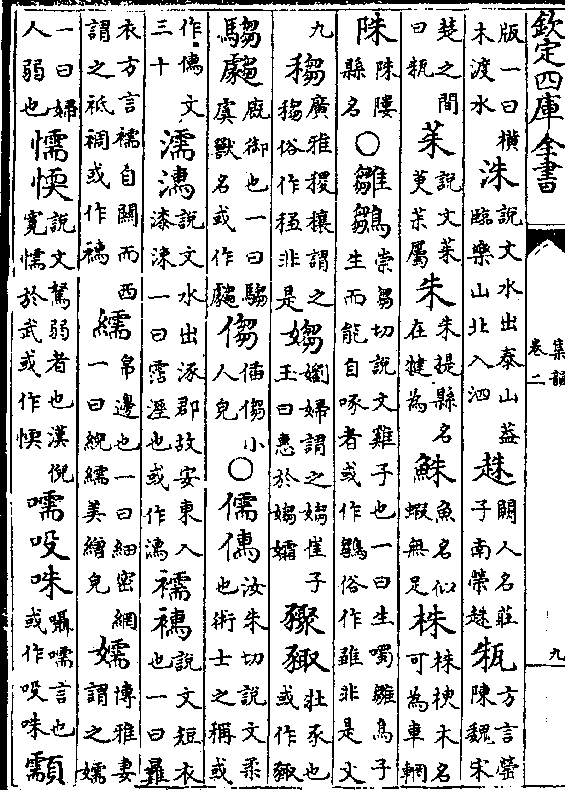 欽定四庫全書
集韻
卷二
九
版一曰橫木渡水洙說文水出泰山蓋臨樂山北入泗趎闕人名莊子南榮趎㼡方言甖陳魏宋
楚之間曰㼡茱說文茱萸茱屬朱朱提縣名在犍為鮢魚名似蝦無足株株㭒木名可為車輞
陎縣名○雛鶵崇芻切說文雞子也一曰生噣雛鳥子生而能自啄者或作鶵俗作非是文
九䅳廣雅稷穰謂之䅳俗作非是媰劉婦謂之媰崔子玉曰惠於媰孀壯豕也或作
騶廐御也一曰騶虞獸名或作㑳偛㑳小人皃○儒汝朱切說文柔也術士之稱或
作文三十濡說文水出涿郡故安東入漆涑一曰霑溼也或作襦說文短衣也一曰
衣方言襦自關而西謂之袛裯或作繻帛邊也一曰細密網一曰綩繻美繒皃嬬博雅妻謂之嬬
一曰婦人弱也懦愞說文駑弱者也漢倪寬懦於武或作愞嚅㕭咮囁嚅言也或作㕭咮顬